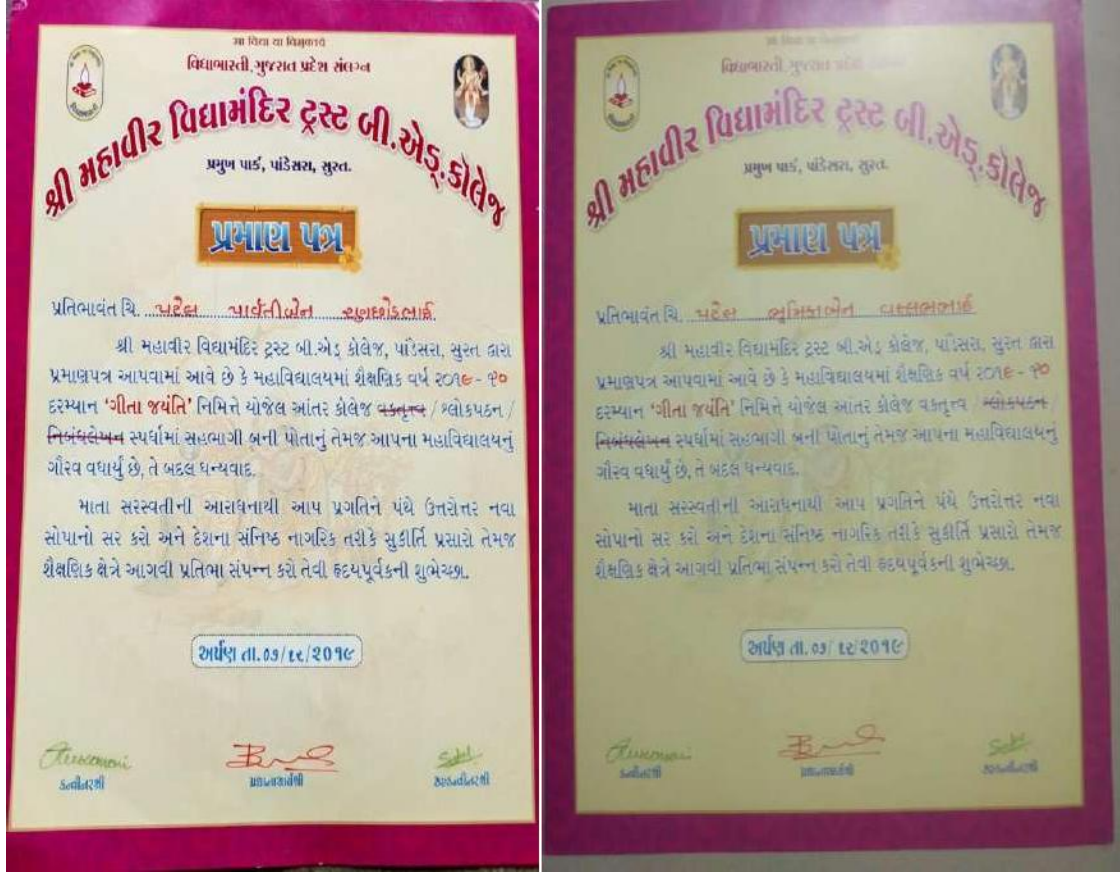 સા વિદ્યા યા વિમુક્તયે
વિદ્યાભારતી, ગુજરાત પ્રદેશ સંલગ્ન
શ્રી મહાવીર વિદ્યામંદિર ટ્રસ્ટ બી.એડ્.કોલેજ
પ્રમુખ પાર્ક, પાંડેસરા, સુરત.
પ્રમાણ પત્ર
પ્રતિભાવંત ચિ. પટેલ પાર્વતીબેન
શ્રી મહાવીર વિદ્યામંદિર ટ્રસ્ટ બી.એડ્ કોલેજ, પાંડેસરા, સુરત દ્વારા
પ્રમાણપત્ર આપવામાં આવે છે કે મહાવિદ્યાલયમાં શૈક્ષણિક વર્ષ ૨૦૧૯ - ૨૦
દરમ્યાન 'ગીતા જયંતિ' નિમિત્તે યોજેલ આંતર કોલેજ વક્તૃત્વ / શ્લોકપઠન /
નિબંધલેખન સ્પર્ધામાં સહભાગી બની પોતાનું તેમજ આપના મહાવિદ્યાલયનું
ગૌરવ વધાર્યું છે, તે બદલ ધન્યવાદ.
માતા સરસ્વતીની આરાધનાથી આપ પ્રગતિને પંથે ઉત્તરોત્તર નવા
સોપાનો સર કરો અને દેશના સંનિષ્ઠ નાગરિક તરીકે સુકીર્તિ પ્રસારો તેમજ
શૈક્ષણિક ક્ષેત્રે આગવી પ્રતિભા સંપન્ન કરો તેવી હૃદયપૂર્વકની શુભેચ્છા.
અર્પણ તા.૦૭/૧૨/૨૦૧૯
કન્વીનરશ્રી
સહકન્વીનરશ્રી
સા વિદ્યા યા વિમુક્તયે
વિદ્યાભારતી, ગુજરાત પ્રદેશ
શ્રી મહાવીર વિદ્યામંદિર ટ્રસ્ટ બી.એડ્.કોલેજ
પ્રમુખ પાર્ક, પાંડેસરા, સુરત.
પ્રમાણ પત્ર
પ્રતિભાવંત ચિ. પટેલ ભૂમિકાબેન વલ્લભભાઈ
શ્રી મહાવીર વિદ્યામંદિર ટ્રસ્ટ બી.એડ્ કોલેજ, પાંડેસરા, સુરત દ્વારા
પ્રમાણપત્ર આપવામાં આવે છે કે મહાવિદ્યાલયમાં શૈક્ષણિક વર્ષ ૨૦૧૯ - ૨૦
દરમ્યાન 'ગીતા જયંતિ' નિમિત્તે યોજેલ આંતર કોલેજ વક્તૃત્વ / શ્લોકપઠન /
નિબંધલેખન સ્પર્ધામાં સહભાગી બની પોતાનું તેમજ આપના મહાવિદ્યાલયનું
ગૌરવ વધાર્યું છે, તે બદલ ધન્યવાદ.
માતા સરસ્વતીની આરાધનાથી આપ પ્રગતિને પંથે ઉત્તરોત્તર નવા
સોપાનો સર કરો અને દેશના સંનિષ્ઠ નાગરિક તરીકે સુકીર્તિ પ્રસારો તેમજ
શૈક્ષણિક ક્ષેત્રે આગવી પ્રતિભા સંપન્ન કરો તેવી હૃદયપૂર્વકની શુભેચ્છા.
અર્પણ તા.૦૭/૧૨/૨૦૧૯
કન્વીનરશ્રી